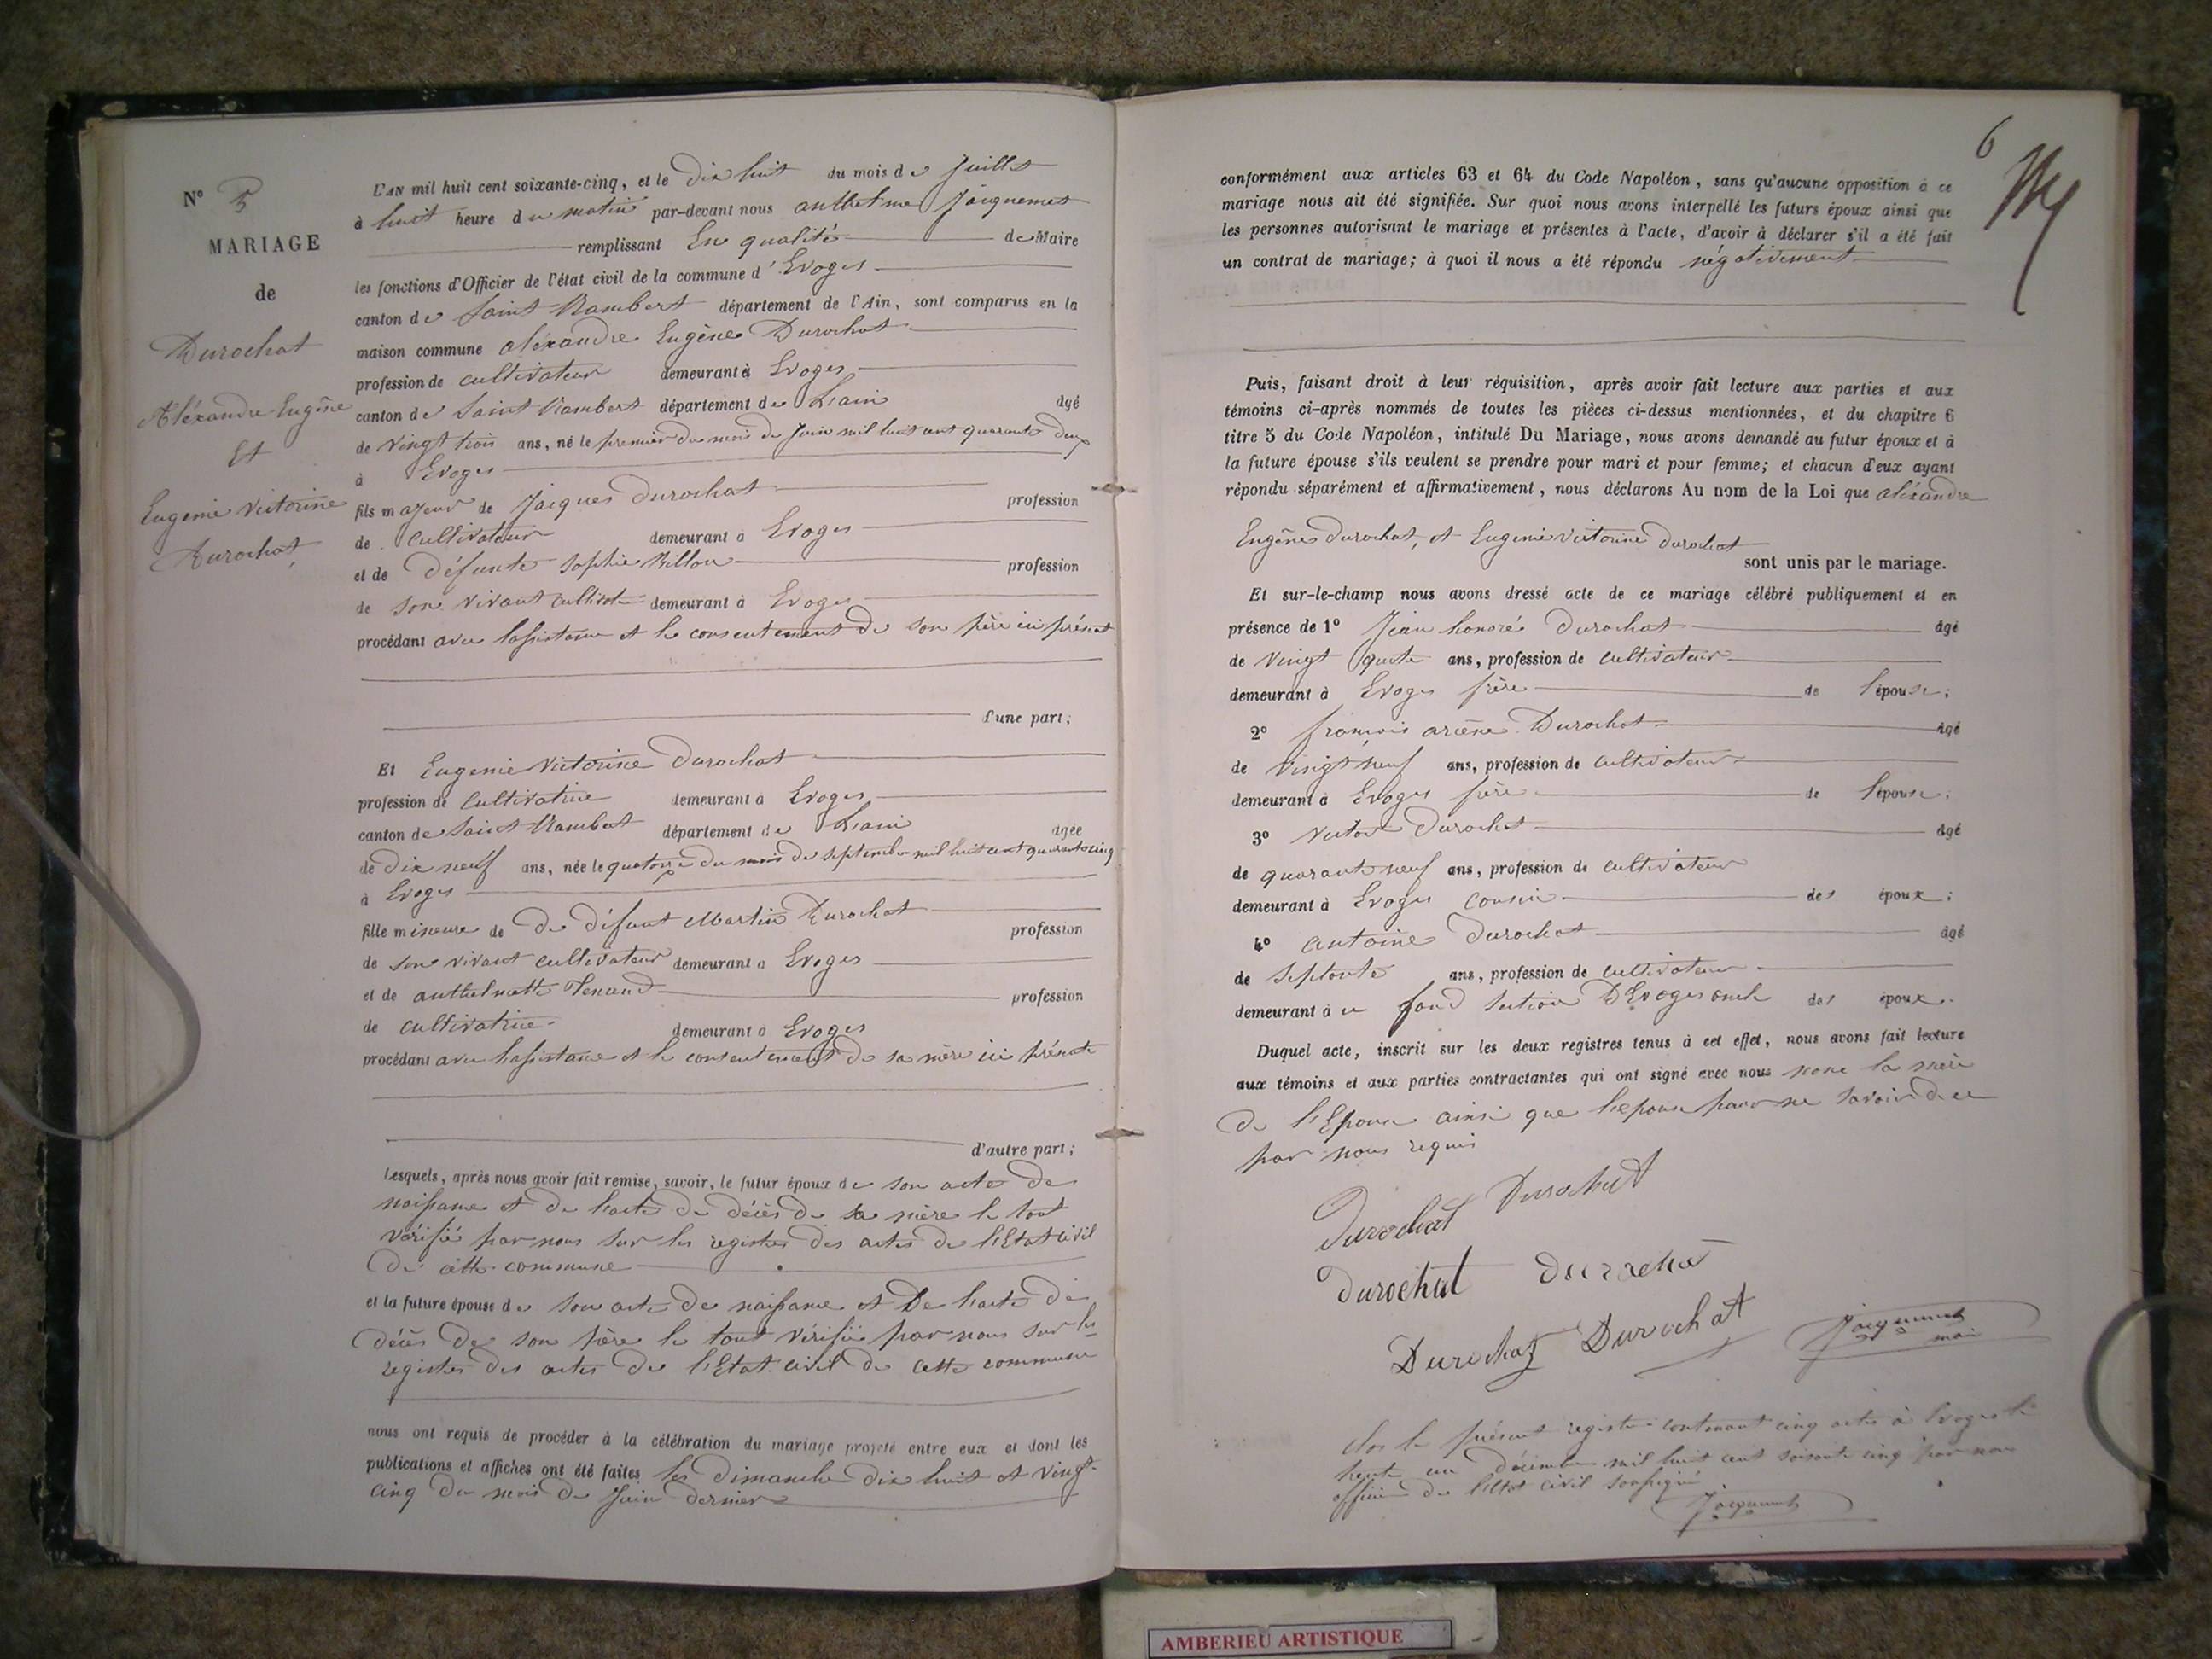 N° 5
MARIAGE
de
Durochat
Aléxandre Eugêne
Et
Eugenie Victorine
Durochat,
L'AN mil huit cent soixante-cinq, et le Dix huit du mois de Juillet
à huit heure du matin par-devant nous anthelme Jacquemet
remplissant En qualité de Maire
les fonctions d'Officier de l'état civil de la commune d'Evoges
canton de Saint Rambert département de l'Ain, sont comparus en la
maison commune aléxandre Eugène Durochat
profession de cultivateur demeurant à Evoges
canton de Saint Rambert département de Lain âgé
de vingt trois ans, né le premier du mois de Juin mil huit cent quarante deux
à Evoges
fils majeur de Jacques Durochat profession
de cultivateur demeurant à Evoges
et de défunte Sophie Billon profession
de son vivant cultivat demeurant à Evoges
procédant avec lassistance et le consentement de son père ici présent
d'une part;
Et Eugenie Victorine Durochat
profession de cultivatrice demeurant à Evoges
canton de Saint Rambert département de Lain âgée
de Dix neuf ans, née le quatorze du mois de septembre mil huit cent quarante cinq
à Evoges
fille mineure de De défunt Martin Durochat profession
de son vivant cultivateur demeurant à Evoges
et de anthelmette Tenand profession
de cultivatrice demeurant à Evoges
procédant avec lassistance et le consentement de sa mère ici présente
d'autre part;
Lesquels, après nous avoir fait remise, savoir, le futur époux de son acte de
naissance et de lacte de décès de sa mère le tout
vérifié par nous sur les registres des actes de l'Etat civil
De cette commune
et la future épouse de son acte de naissance et De lacte de
décès de son père le tout vérifié par nous sur les
registres des actes de l'Etat civil de cette commune
nous ont requis de procéder à la célébration du mariage projeté entre eux et dont les
publications et affiches ont été faites les dimanche dix huit et vingt-
cinq du mois de Juin dernier
6
conformément aux articles 63 et 64 du Code Napoléon, sans qu'aucune opposition à ce
mariage nous ait été signifiée. Sur quoi nous avons interpellé les futurs époux ainsi que
les personnes autorisant le mariage et présentes à l'acte, d'avoir à déclarer s'il a été fait
un contrat de mariage; à quoi il nous a été répondu négativement
Puis, faisant droit à leur réquisition, après avoir fait lecture aux parties et aux
témoins ci-après nommés de toutes les pièces ci-dessus mentionnées, et du chapitre 6
titre 5 du Code Napoléon, intitulé Du Mariage, nous avons demandé au futur époux et à
la future épouse s'ils veulent se prendre pour mari et pour femme; et chacun d'eux ayant
répondu séparément et affirmativement, nous déclarons Au nom de la Loi que aléxandre
Eugêne Durochat, et Eugenie Victorine Durochat
sont unis par le mariage.
Et sur-le-champ nous avons dressé acte de ce mariage célébré publiquement et en
présence de 1° Jean honoré Durochat âgé
de vingt quatre ans, profession de cultivateur
demeurant à Evoges frère de l'épouse;
2° françois arcène Durochat âgé
de vingt neuf ans, profession de cultivateur
demeurant à Evoges frère de l'épouse;
3° Victor Durochat âgé
de quarante neuf ans, profession de cultivateur
demeurant à Evoges cousin des époux;
4° antoine Durochat âgé
de septante ans, profession de cultivateur
demeurant à ce fond section D'Evoges oncle des époux.
Duquel acte, inscrit sur les deux registres tenus à cet effet, nous avons fait lecture
aux témoins et aux parties contractantes qui ont signé avec nous none la mère
De l'Epouse ainsi que lepouse pour ne savoir de ce
par nous requis
Durochat Durochat
Durochat Durochat
Durochat Durochat Jacquemet
maire
Clos le présent registre contenant cinq actes à Evoges le
trente un Décembre mil huit cent soixante cinq par nous
officier de l'Etat civil soussigné
Jacquemet
AMBERIEU ARTISTIQUE